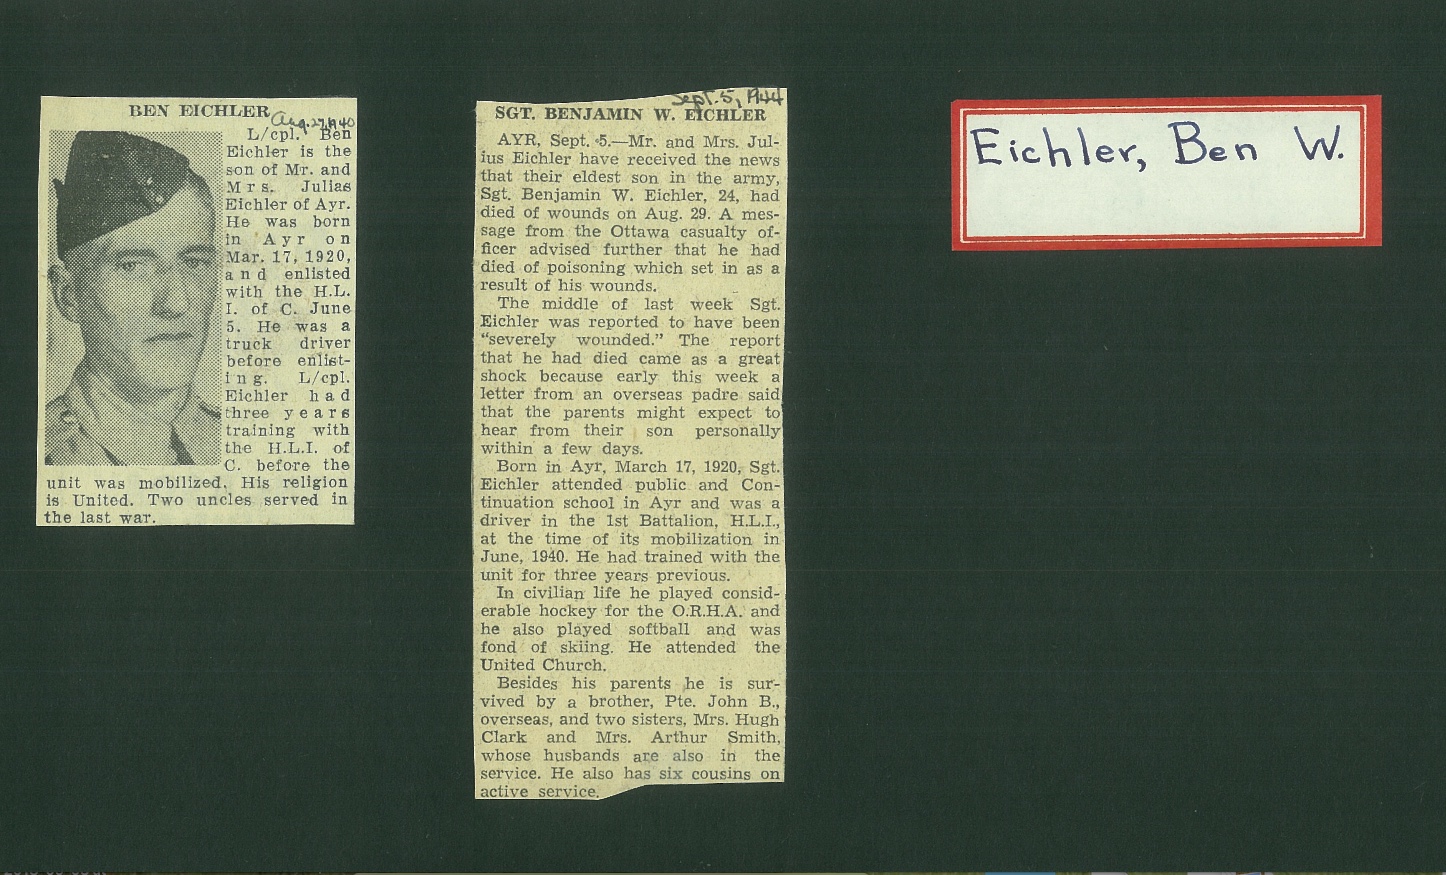 BEN EICHLER
Aug. 27, 1940
L/cpl. Ben
Eichler is the
son of Mr. and
Mrs. Julias
Eichler of Ayr.
He was born
in Ayr on
Mar. 17, 1920,
and enlisted
with the H.L.
I. of C. June
5. He was a
truck driver
before enlist-
ing. L/cpl.
Eichler had
three years
training with
the H.L.I. of
C. before the
unit was mobilized. His religion
is United. Two uncles served in
the last war.
Sept. 5, 1944
SGT. BENJAMIN W. EICHLER
AYR, Sept. 5.—Mr. and Mrs. Jul-
ius Eichler have received the news
that their eldest son in the army,
Sgt. Benjamin W. Eichler, 24, had
died of wounds on Aug. 29. A mes-
sage from the Ottawa casualty of-
ficer advised further that he had
died of poisoning which set in as a
result of his wounds.
The middle of last week Sgt.
Eichler was reported to have been
"severely wounded." The report
that he had died came as a great
shock because early this week a
letter from an overseas padre said
that the parents might expect to
hear from their son personally
within a few days.
Born in Ayr, March 17, 1920, Sgt.
Eichler attended public and Con-
tinuation school in Ayr and was a
driver in the 1st Battalion, H.L.I.,
at the time of its mobilization in
June, 1940. He had trained with the
unit for three years previous.
In civilian life he played consid-
erable hockey for the O.R.H.A. and
he also played softball and was
fond of skiing. He attended the
United Church.
Besides his parents he is sur-
vived by a brother, Pte. John B.,
overseas, and two sisters, Mrs. Hugh
Clark and Mrs. Arthur Smith,
whose husbands are also in the
service. He also has six cousins on
active service.
Eichler, Ben W.